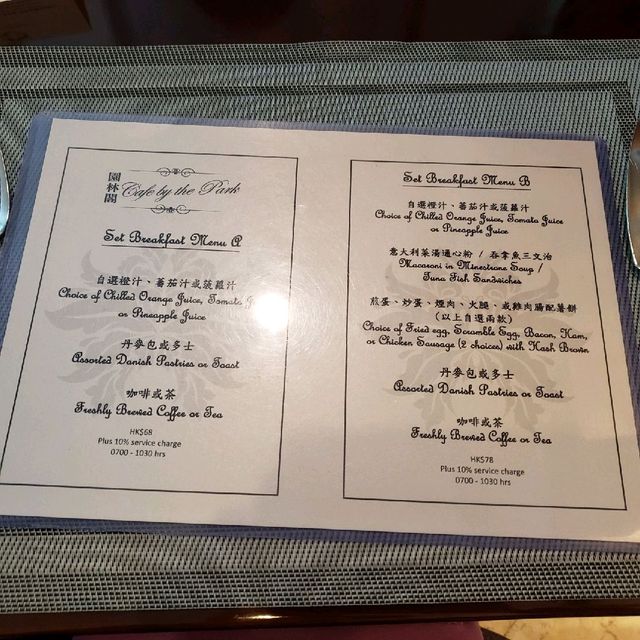 園林閣
Cafe by the Park
Set Breakfast Menu A
自選橙汁、蕃茄汁或菠蘿汁
Choice of Chilled Orange Juice, Tomato J
or Pineapple Juice
丹麥包或多士
Assorted Danish Pastries or Toast
咖啡或茶
Freshly Brewed Coffee or Tea
HK$68
Plus 10% service charge
0700 - 1030 hrs
Set Breakfast Menu B
自選橙汁、蕃茄汁或菠蘿汁
Choice of Chilled Orange Juice, Tomato Juice
or Pineapple Juice
意大利菜湯通心粉 / 吞拿魚三文治
Macaroni in Minestrone Soup /
Tuna Fish Sandwiches
煎蛋、炒蛋、煙肉、火腿、或雞肉腸配薯餅
(以上自選兩款)
Choice of Fried egg, Scramble Egg, Bacon, Ham,
or Chicken Sausage (2 choices) with Hash Brown
丹麥包或多士
Assorted Danish Pastries or Toast
咖啡或茶
Freshly Brewed Coffee or Tea
HK$78
Plus 10% service charge
0700 - 1030 hrs